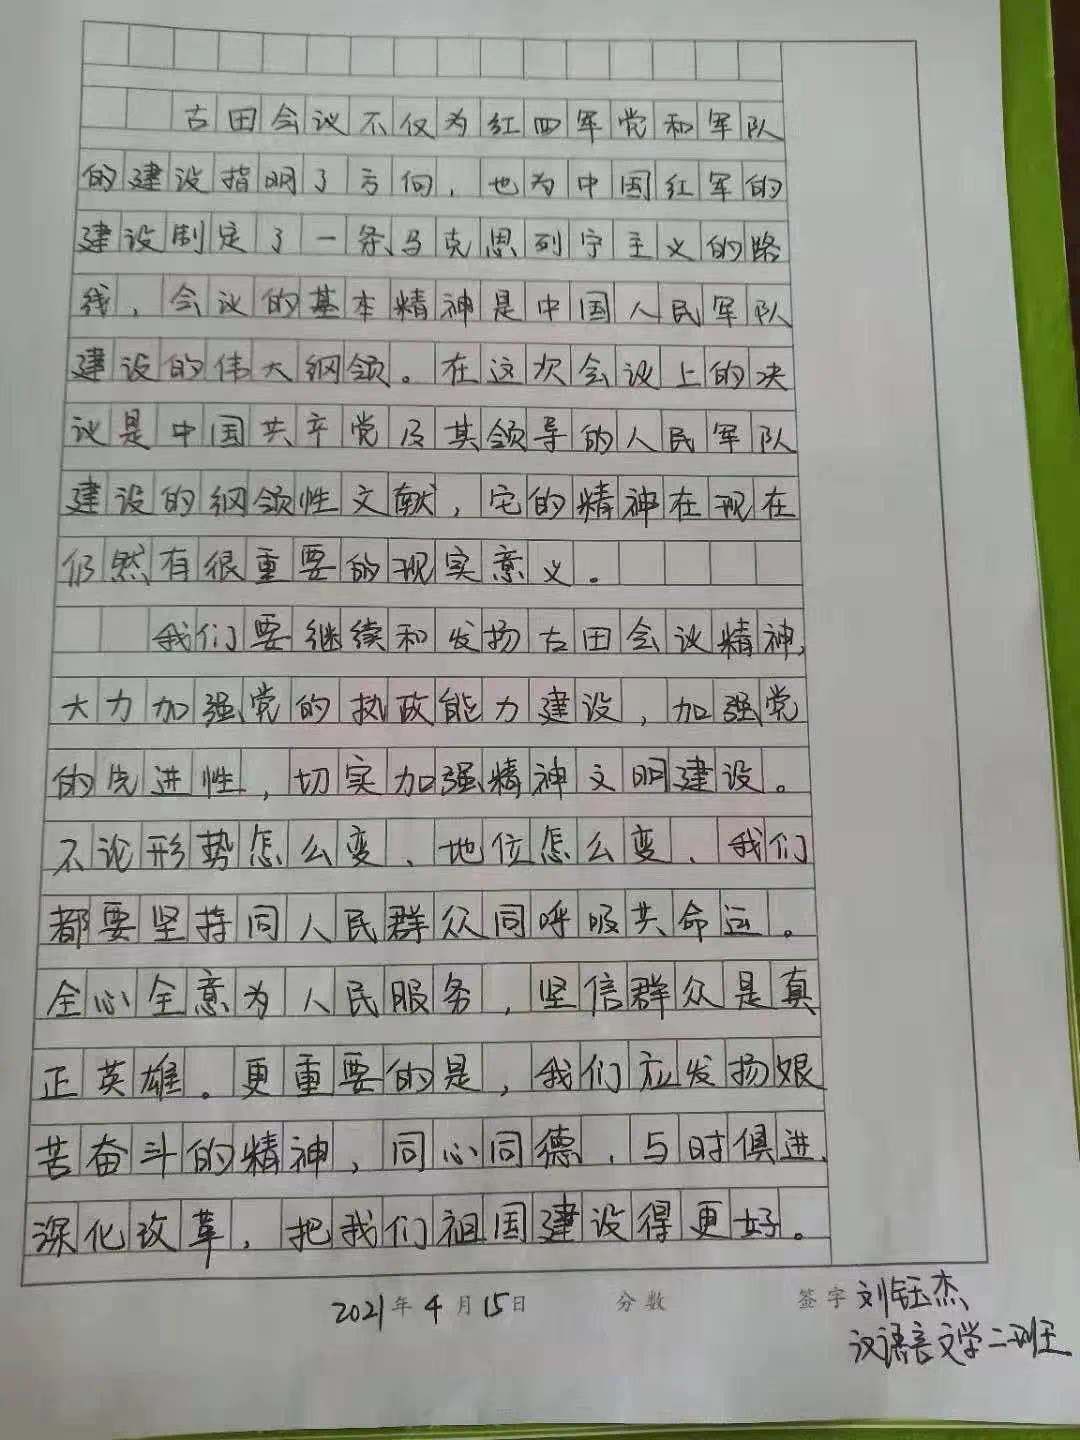 古田会议不仅为红四军党和军队
的建设指明了方向，也为中国红军的
建设制定了一条马克思列宁主义的路
线，会议的基本精神是中国人民军队
建设的伟大纲领。在这次会议上的决
议是中国共产党及其领导的人民军队
建设的纲领性文献，它的精神在现在
仍然有很重要的现实意义。
我们要继续和发扬古田会议精神，
大力加强党的执政能力建设，加强党
的先进性，切实加强精神文明建设。
不论形势怎么变、地位怎么变、我们
都要坚持同人民群众同呼吸共命运。
全心全意为人民服务，坚信群众是真
正英雄。更重要的是，我们应发扬艰
苦奋斗的精神，同心同德，与时俱进、
深化改革，把我们祖国建设得更好。
2021年4月15日 分数 签字 刘钰杰
汉语言文学二班